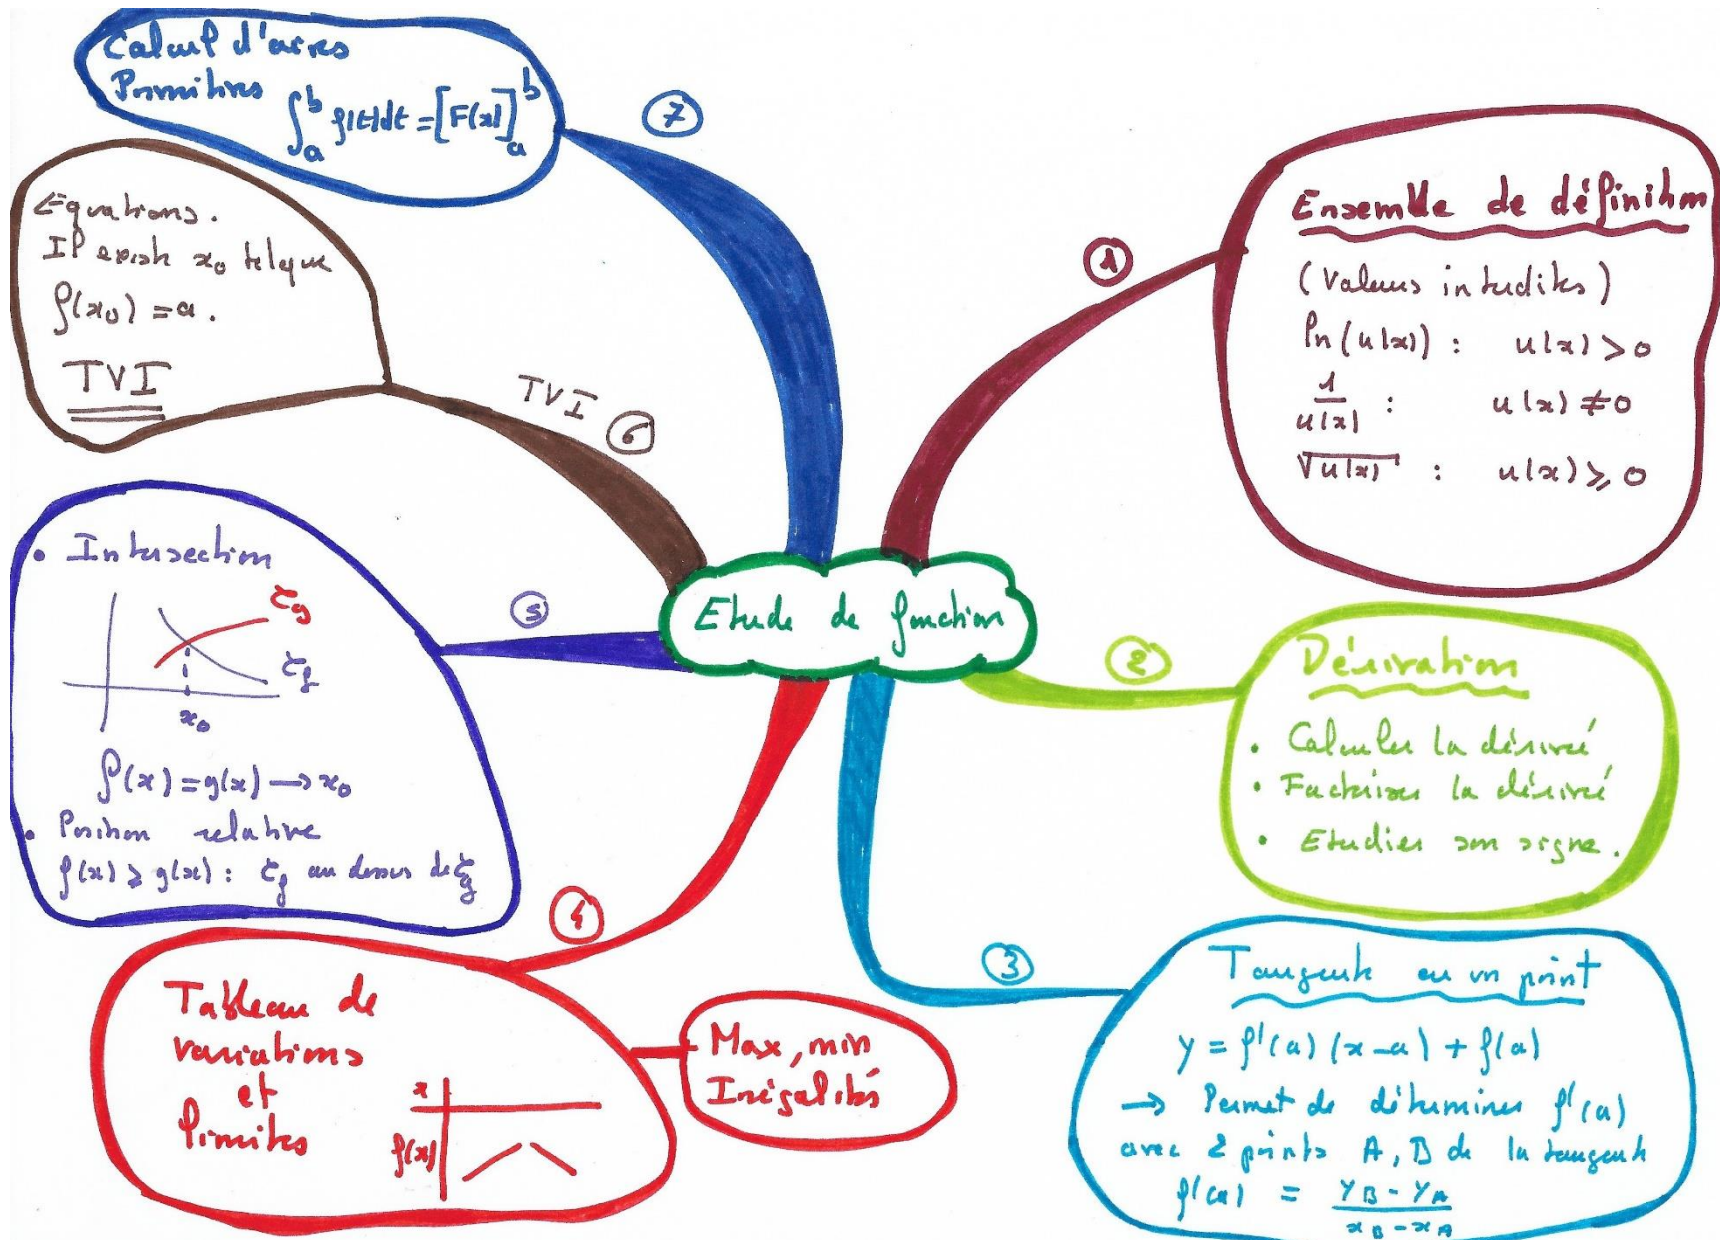 Etude de fonction
①
Ensemble de définition
(Valeurs interdites)
ln(u(x)) : u(x) > 0
1/u(x) : u(x) ≠ 0
√u(x) : u(x) ≥ 0
②
Dérivation
• Calculer la dérivée
• Factoriser la dérivée
• Etudier son signe.
③
Tangente en un point
y = f'(a) (x - a) + f(a)
→ Permet de déterminer f'(a)
avec 2 points A, B de la tangente
f'(a) = (yB - yA)/(xB - xA)
④
Tableau de
variations
et
limites
x
f(x)
Max, min
Inégalités
⑤
• Intersection
Cg
Cf
x₀
f(x) = g(x) → x₀
• Position relative
f(x) ≥ g(x) : Cf au dessus de Cg
⑥
TVI
Equations.
Il existe x₀ tel que
f(x₀) = a.
TVI
⑦
Calcul d'aires
Primitives
∫ₐᵇ f(t)dt = [F(x)]ₐᵇ